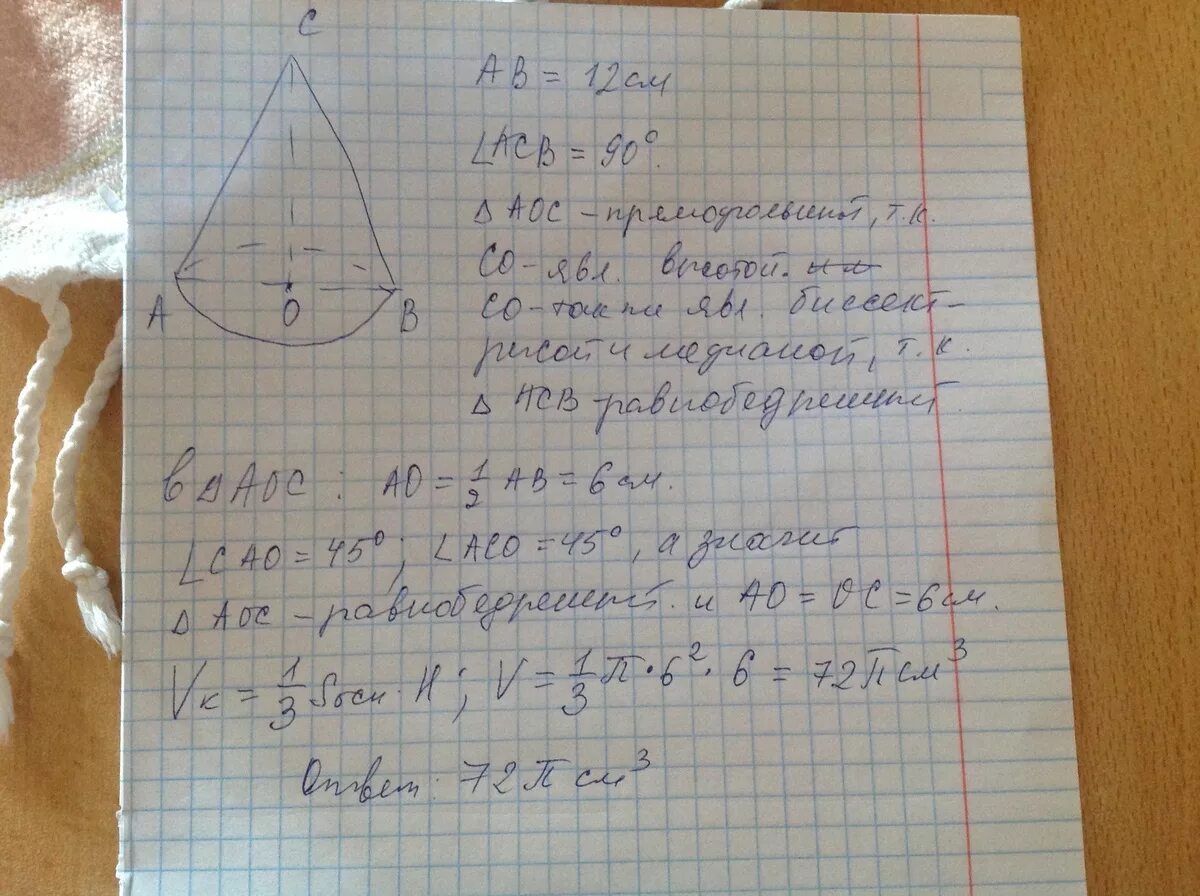 C
A
O
B
AB = 12см
∠ACB = 90°.
Δ AOC – прямоугольный, т.к.
CO – явл. высотой.
CO – также явл. биссект-
рисой и медианой, т.к.
Δ ACB – равнобедренный.
в ΔAOC : AO = 1/2 AB = 6 см.
∠CAO = 45°; ∠ACO = 45°, а значит
Δ AOC – равнобедренный. и AO = OC = 6 см.
Vк = 1/3 Sосн · H ; V = 1/3 π · 6² · 6 = 72π см³
Ответ: 72π см³